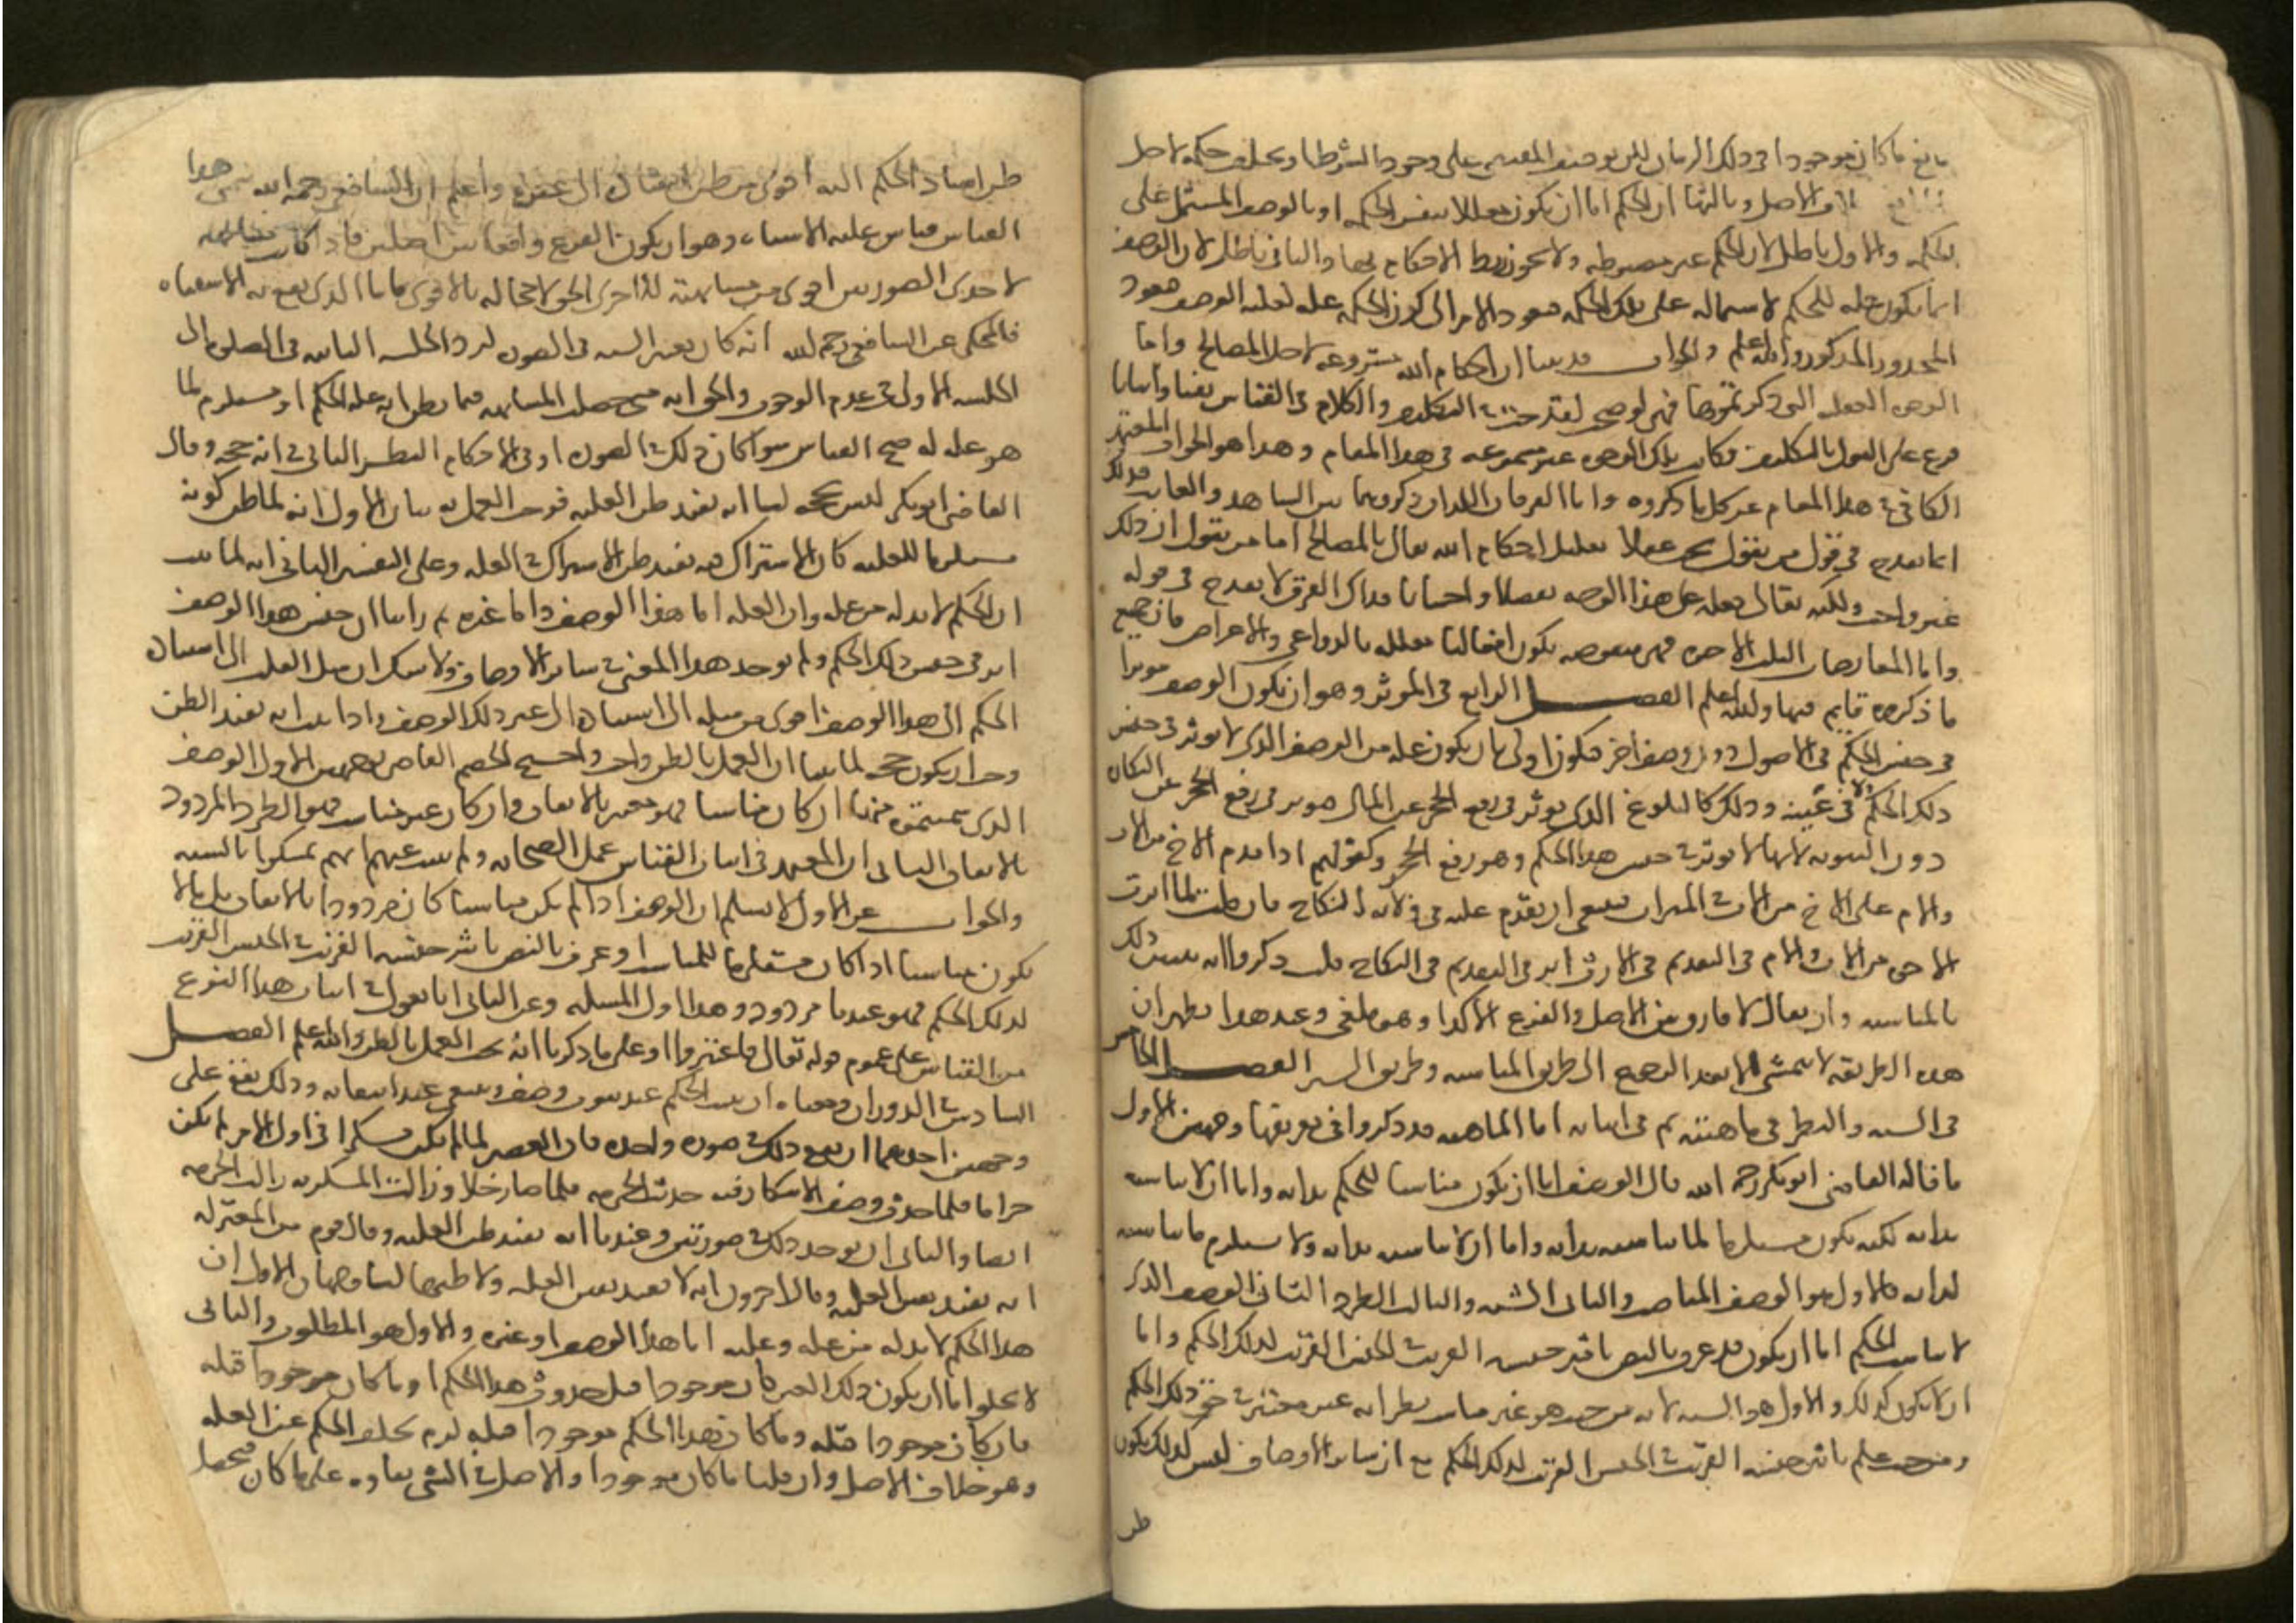 مانع ما كان موجودا في ذلك الزمان لكن توقف المقتضي على وجود الشرط او تخلف حكمه لاجل
خلاف الاصل وثالثها ان الحكم اما ان يكون معللا بنفس الحكمه او بالوصف المشتمل على
الحكمه والاول باطل لان الحكم غير مضبوطه ولا يجوز ربط الاحكام بها والثاني باطل لان الوصف
انما يكون عله للحكم لاشتماله على تلك الحكمه فيعود الامر الى كون الحكمه عله لعليه الوصف فيعود
المحدور المذكور والله اعلم والجواب قد بينا ان احكام الله مشروعه لاجل المصالح واما
الوجوه العقليه التي ذكرتموها فهي لو صحت لقدحت في التكليف والكلام في القياس نفيا واثباتا
فرع على القول بالتكليف فكانت تلك الوجوه غير مسموعه في هذا المقام وهذا هو الجواب المعتمد
الكافي في هذا المقام عن كل ما ذكروه واما الفرقان اللذان ذكروهما بين الشاهد والغايب فذلك
انما يقدح في قول من يقول يجب عقلا تعليل احكام الله تعالى بالمصالح اما من يقول ان ذلك
غير واجب ولكنه تعالى فعله على هذا الوجه تفضلا واحسانا فذاك الفرق لا يقدح في قوله
واما المعارضات الثلث الاخيره فهي منقوضه بكون افعالنا معلله بالدواعي والاعراض فان جميع
ما ذكروه قايم فيها والله اعلم الفصل الرابع في الموثر وهو ان يكون الوصف موثرا
في جنس الحكم في الاصول دون وصف اخر فيكون اولى بان يكون عله من الوصف الذي لا يوثر في جنس
ذلك الحكم ولا في عينه وذلك كالبلوغ الذي يوثر في رفع الحجر عن المال فيوثر في رفع الحجر عن النكاح
دون الثيوبه لانها لا توثر في جنس هذا الحكم وهو رفع الحجر وكقولهم اذا قدم الاخ من الاب
والام على الاخ من الاب في الميراث فينبغي ان يقدم عليه في ولايه النكاح فان قلت لما اثرت
الاخوه من الاب والام في التقديم في الارث اثر في التقديم في النكاح قلت ذكروا انه يثبت ذلك
بالمناسبه وان يقال لا فارق بين الاصل والفرع الا كذا وهو ملغى وعند هذا يظهر ان
هذه الطريقه لا تتمشى الا بعد الرجوع الى طريق المناسبه وطريق السبر الفصل الخامس
في الشبه والنظر في ماهيته ثم في اثباته اما الماهيه فقد ذكروا في تعريفها وجهين الاول
ما قاله القاضي ابو بكر رحمه الله قال الوصف اما ان يكون مناسبا للحكم بذاته واما ان لا يناسبه
بذاته لكنه يكون مستلزما لما يناسبه بذاته واما ان لا يناسبه بذاته ولا يستلزم ما يناسبه
لذاته فالاول هو الوصف المناسب والثاني الشبه والثالث الطرد الثاني الوصف الذي
لا يناسب الحكم اما ان يكون قد عرف بالنص تاثير جنسه القريب في الجنس القريب لذلك الحكم واما
ان لا يكون كذلك والاول هو الشبه لانه من حيث هو غير مناسب يظن انه غير معتبر في حق ذلك الحكم
ومن حيث علم تاثير جنسه القريب في الجنس القريب لذلك الحكم مع ان ساير الاوصاف ليس كذلك يكون
ظن
ظن اسناد الحكم اليه اقوى من ظن اسناده الى غيره واعلم ان الشافعي رحمه الله يسمي هذا
القياس قياس غلبه الاشباه وهو ان يكون الفرع واقعا بين اصلين فاذا كانت مشابهته
لاحدى الصورتين اقوى من مشابهته للاخرى الحق لا محاله بالاقوى فاما الذي يقع به الاشتباه
فالمحكي عن الشافعي رحمه الله انه كان يعتبر الشبه في الصوره كرد الجلسه الثانيه في الصلوه الى
الجلسه الاولى في عدم الوجوب والحق انه متى حصلت المشابهه فيما يظن انه عله الحكم او مستلزم لما
هو عله له صح القياس سواء كان ذلك في الصوره او في الاحكام النظر الثاني في انه حجه وقال
القاضي ابو بكر ليس بحجه لنا انه يفيد ظن العليه فوجب العمل به بيان الاول انه لما ظن كونه
مستلزما للعليه كان الاشتراك فيه يفيد ظن الاشتراك في العله وعلى التفسير الثاني انه لما ثبت
ان الحكم لا بد له من عله وان العله اما هذا الوصف واما غيره ثم راينا ان جنس هذا الوصف
اثر في جنس ذلك الحكم ولم يوجد هذا المعنى في ساير الاوصاف ولا شك ان ميل القلب الى اسناد
الحكم الى هذا الوصف اقوى من ميله الى اسناده الى غير ذلك الوصف واذا ثبت انه يفيد الظن
وجب ان يكون حجه لما بينا ان العمل بالظن واجب واحتج الخصم القاضي بوجهين الاول الوصف
الذي سميتموه شبها ان كان مناسبا فهو معتبر بالاتفاق وان كان غير مناسب فهو الطرد المردود
بالاتفاق الثاني ان المعتمد في اثبات القياس عمل الصحابه ولم يثبت عنهم انهم تمسكوا بالشبه
والجواب عن الاول لا نسلم ان الوصف اذا لم يكن مناسبا كان مردودا بالاتفاق بل ما لا
يكون مناسبا اذا كان مستلزما للمناسب او عرف بالنص تاثير جنسه القريب في الجنس القريب
لذلك الحكم فهو عندنا غير مردود وهذا اول المسله وعن الثاني انا نعول في اثبات هذا النوع
من القياس على عموم قوله تعالى فاعتبروا او على ما ذكرنا انه يجب العمل بالظن والله اعلم الفصل
السادس في الدوران ومعناه ان يثبت الحكم عند ثبوت وصف وينتفي عند انتفائه وذلك يقع على
وجهين احدهما ان يقع ذلك في صوره واحده فان العصير لما لم يكن مسكرا في اول الامر لم يكن
حراما فلما حدث وصف الاسكار فيه حدثت الحرمه فلما صار خلا وزالت المسكريه زالت الحرمه
ايضا والثاني ان يوجد ذلك في صورتين وعندنا انه يفيد ظن العليه وقال قوم من المعتزله
انه يفيد يقين العليه وقال اخرون انه لا يفيد يقين العليه ولا ظنها لنا وجهان الاول ان
هذا الحكم لا بد له من عله وعلته اما هذا الوصف او غيره والاول هو المطلوب والثاني
لا يخلو اما ان يكون ذلك الغير كان موجودا قبل حدوث هذا الحكم او ما كان موجودا قبله
فان كان موجودا قبله وما كان هذا الحكم موجودا قبله لزم تخلف الحكم عن العله
وهو خلاف الاصل وان قلنا ما كان موجودا والاصل في الشي بقاوه على ما كان فيحصل